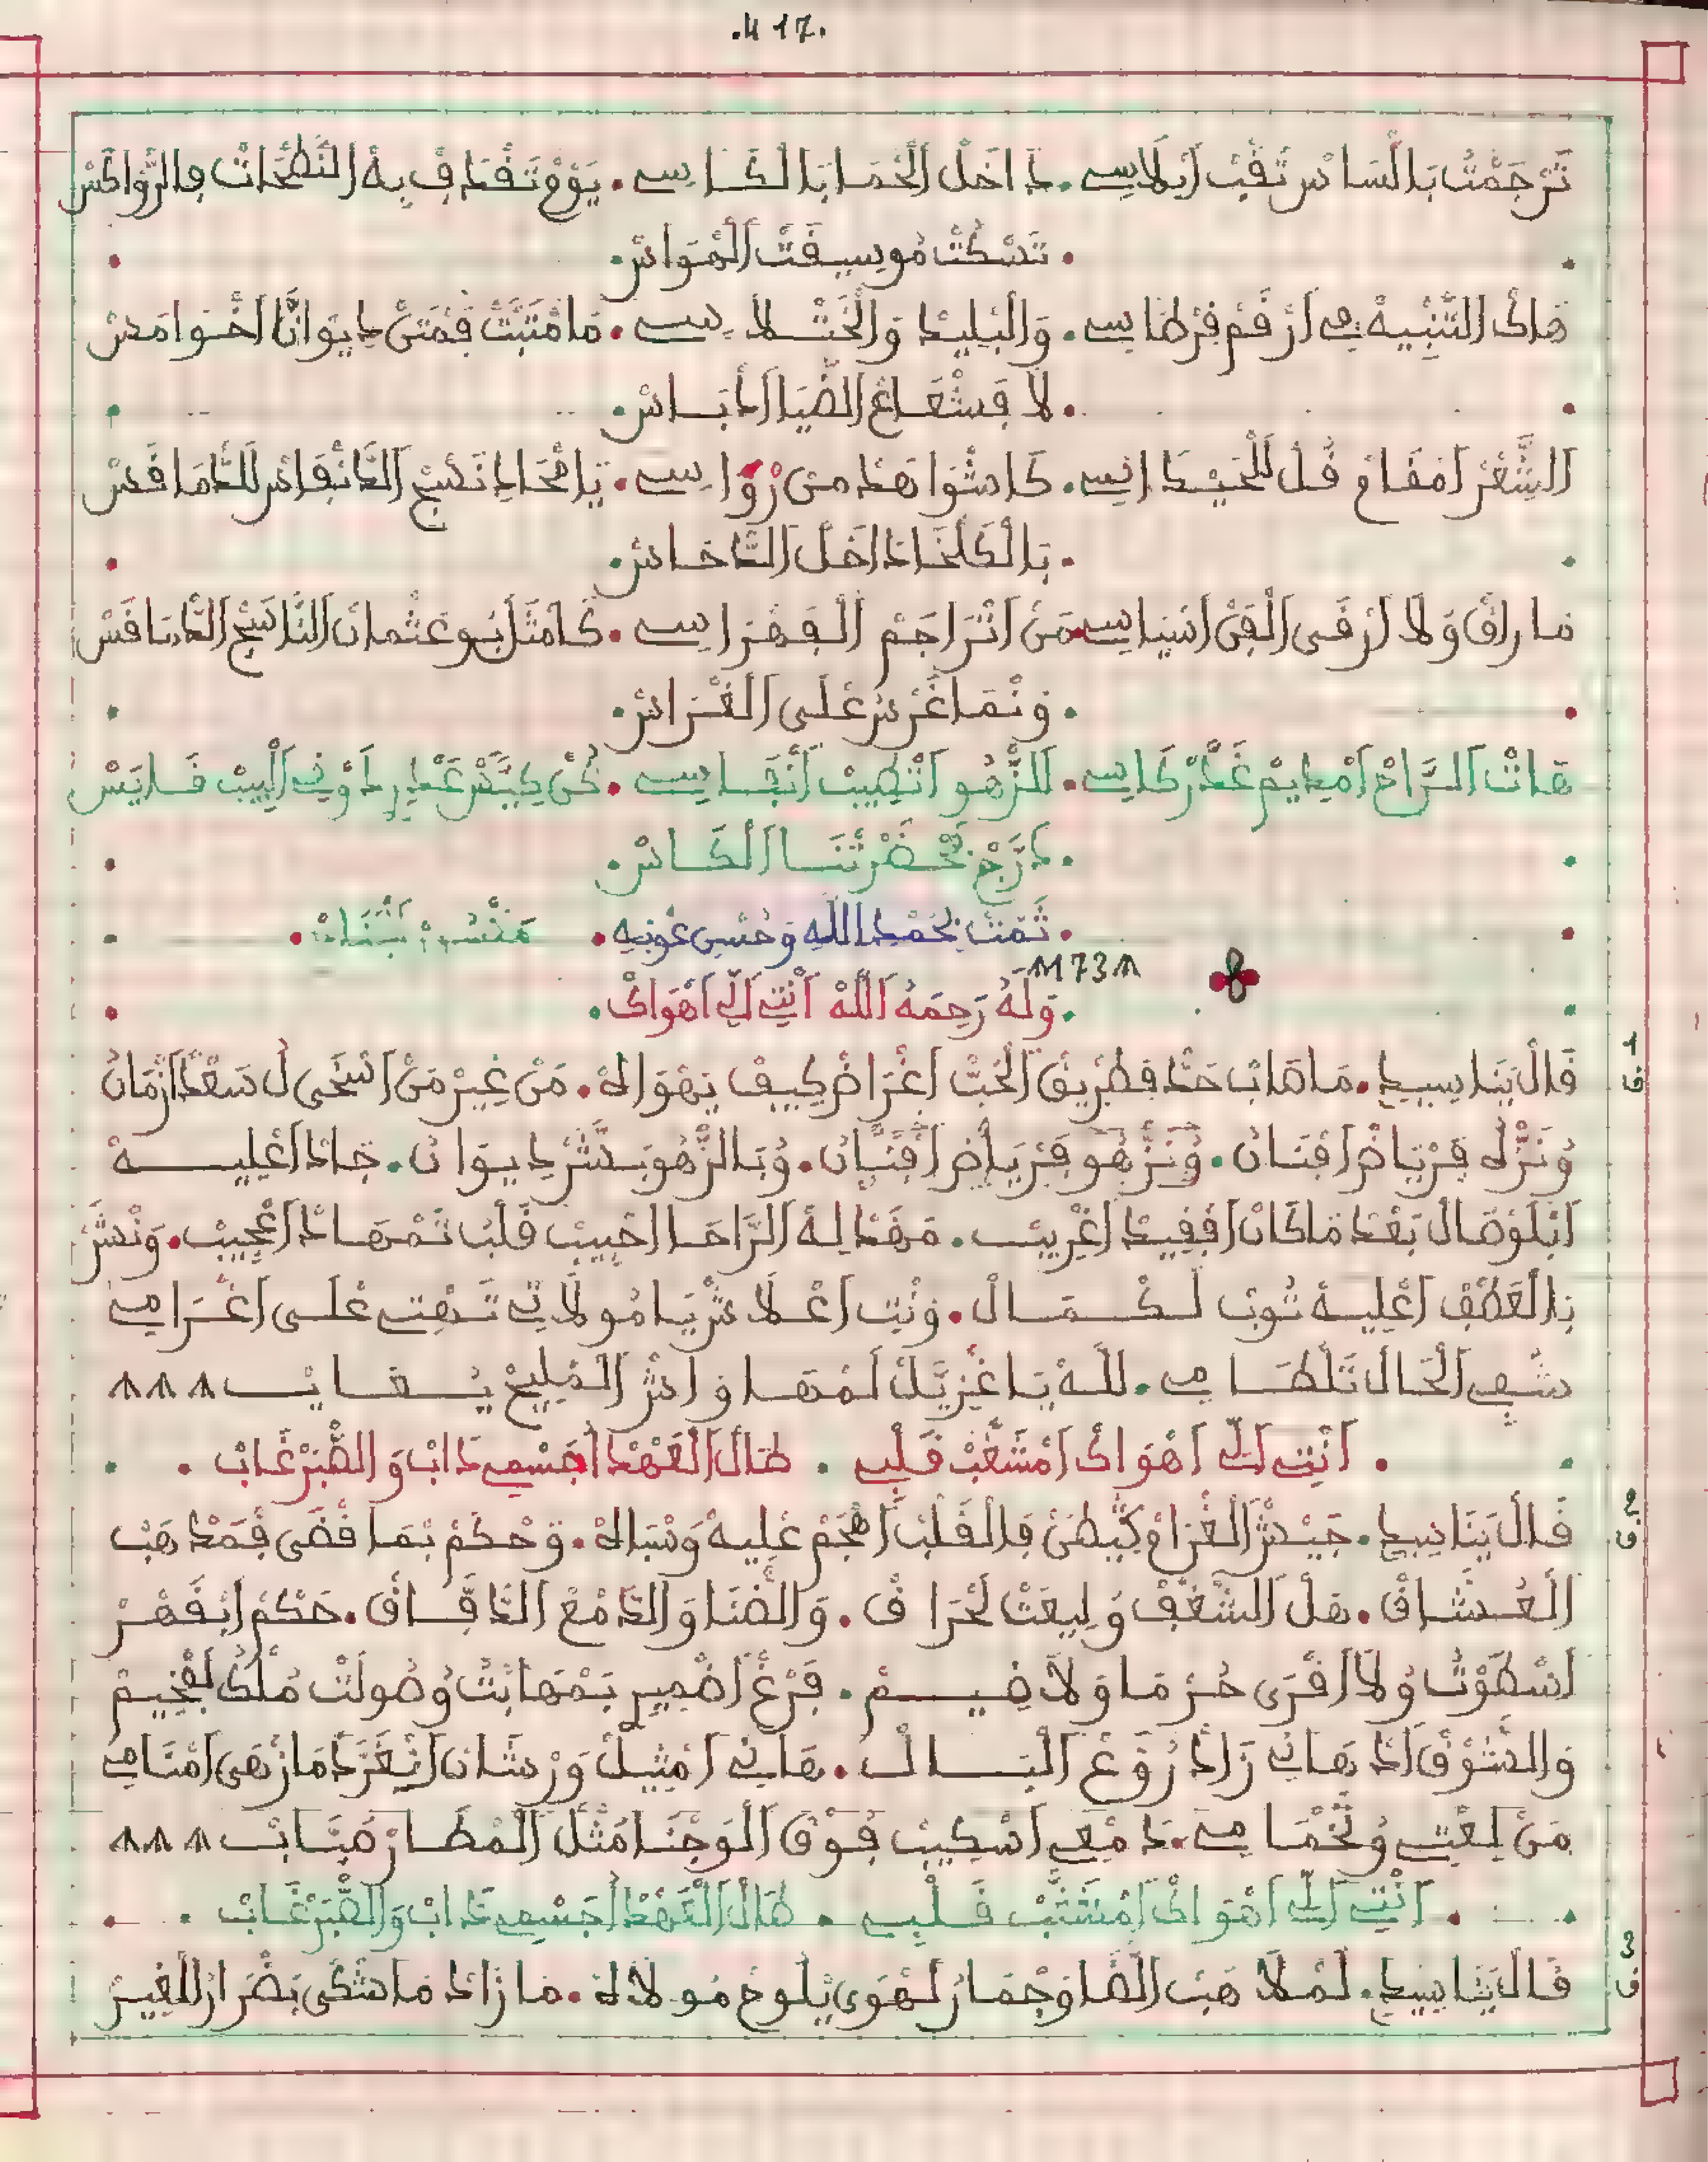 .417.
تَرْجَمْتْ بَالسَاسْ تَقْبْ اَيْلَاسِي . دَاخَلْ الْحْمَا بَالْكَاسِي . يَوْمْ تَقْدَافْ بِهْ النَّطْحَاتْ وِالرْوَاكَسْ
. تَسْكُتْ مُوسِيقَتْ الْهْوَايَسْ .
هَاكْ التَّنْبِيهْ فِي اَرْقَمْ قِرْطَاسِي . وَالْبْلِيدْ وَالْخَتْلَاسِي . مَا مْتَبَّتْ فَمْتَنْ دِيوَانَّا اَخْوَامَسْ
. لَا فَشْعَاعْ الضْيَا اَدَبَاسْ .
الشَّعْرْ اَمْقَامْ قُلْ لَلْحَيْدَاسِي . كَامَنُوا هَذَ مَنْ رْوَاسِي . يَا مْحَادِ نَسْجْ الدَّنْفَاسْ لَلدَّمَافَسْ
. بَالْكَلْخَا دَاخَلْ الدَّخَاسْ .
مَا رَاقْ وَلَا اَرْقَى الْفَنْ اَنْسَاسِي مَنْ اتْرَاجَمْ الْفَهْرَاسِي . كَامْثَلْ بُوعَثْمَانْ النَّاسَجْ الدَّمَافَسْ
. وَنْقَمَا غَرْسْ عْلَى الْغْرَاسْ .
هَاتْ الرَّاحْ اَمْدِيمْ عَمَّرْ كَاسِي . لَلزَّهُو اَتْطِيبْ اَنْفَاسِي . كُنْ كِيَّسْ عَنْدِ دَاوْنِي اَلْبِيبْ فَايَسْ
. دَرَّجْ نَحْضَرْتْنَا الْكَاسْ .
. تَمَّتْ بِحَمْدِ اللَّهِ وَحُسْنِ عَوْنِهِ .
-173-
. وَلَهُ رَحِمَهُ اللَّهْ اَنْتِ اَلِّي اَهْوَاكْ .
1 ق
قَالْ يَنَاسِيدِي . مَا هَابْ حَدْ فَطْرِيقْ الْحُبْ اَغْرَاضْ كِيفْ يَهْوَالَهْ . مَنْ غِيرْ مَنْ اَسْخَى لُ سَعْدْ اَزْمَانُ
وُنَزْلُهْ فَرْيَاضْ اَفْنَانُ . وُنَزْهُو فَرْيَاضْ اَفْنَانُ . وُبَالزَّهُو بَشَّرْ دِيوَانُ . جَادْ اَعْلِيهْ
اَبْلَوْصَالْ بَعْدْ مَا كَانْ اَفْقِيدْ اَغْرِيبْ . مَهَّدْ لِهْ الرَّاحَا اَحْبِيبْ قَلْبُ تَمْهَادْ اَعْجِيبْ . وَنْشَرْ
بَالْعَطْفْ اَعْلِيهْ ثُوبْ لَكْمَالْ . وَنْتِ اَعْلَاشْ يَا مُولَاتِي تَنْهْتِي عْلَى اَغْرَامِي
شَفِي الْحَالْ تَلْطَامِي . لَلَّهْ يَا غْزِيَّلْ لَمْهَا وَاشْ الْمْلِيحْ يْعَايَبْ
. اَنْتِ اَلِّي اَهْوَاكْ اَمْشَغَّبْ قَلْبِي . طَالْ الْعَهْدْ اُجَسْمِي دَابْ وَالصْبَرْ غَابْ .
2 ق
قَالْ يَنَاسِيدِي . جَيْشْ الْغْرَامْ كَيْطْعَنْ فَالْقَلْبْ اَهْجَمْ عْلِيهْ وَسْبَالَهْ . وَحْكَمْ بْمَا قْضَى فْمَدْهَبْ
الْعُشَّاقْ . هَلْ الشَّغْفْ وُلِيعَتْ لَحْرَاقْ . وَالضْنَا وَالدَّمْعْ الدَّفَّاقْ . حَكْمْ اَبْقَهْرْ
اَسْطَوْتُ وُلَا اَقْرَى حُرْمَا وَلَا ضِيمْ . فَرْغْ اَضْمِيرِ بَمْهَابْتُ وُصُولَتْ مُلْكُ لَفْخِيمْ
وَالشُّوقْ اَدْهَانِي زَادْ رُوَّعْ الْبَالْ . هَانِي اَمْثِيلْ وَرْشَانْ اَنْغَرَّدْ مَا زْهَى اَمْنَامِي
مَنْ لِعْتِي وُتَخْمَامِي . دَمْعِي اَسْكِيبْ فُوقْ الْوَجْنَا مْثَلْ الْمْطَارْ صَبَّابْ
. اَنْتِ اَلِّي اَهْوَاكْ اَمْشَغَّبْ قَلْبِي . طَالْ الْعَهْدْ اُجَسْمِي دَابْ وَالصْبَرْ غَابْ .
3 ق
قَالْ يَنَاسِيدِي . لَمْلَا هَبْ الْضَا وَجْمَارْ لَهْوَى يْلُوحْ مُولَالَهْ . مَا زَادْ مَا شْكَى بَضْرَارُ لَلْغِيرْ